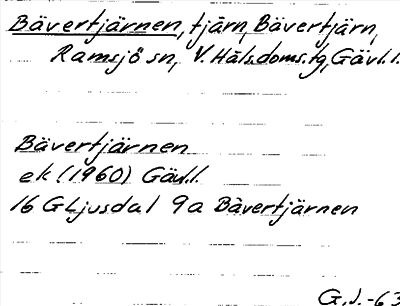 Bävertjärnen, tjärn, Bävertjärn,
Ramsjö sn, V. Häls. doms.tg, Gävl.l.
Bävertjärnen
ek (1960) Gävl.l.
16 G Ljusdal 9a Bävertjärnen
G.J.-63